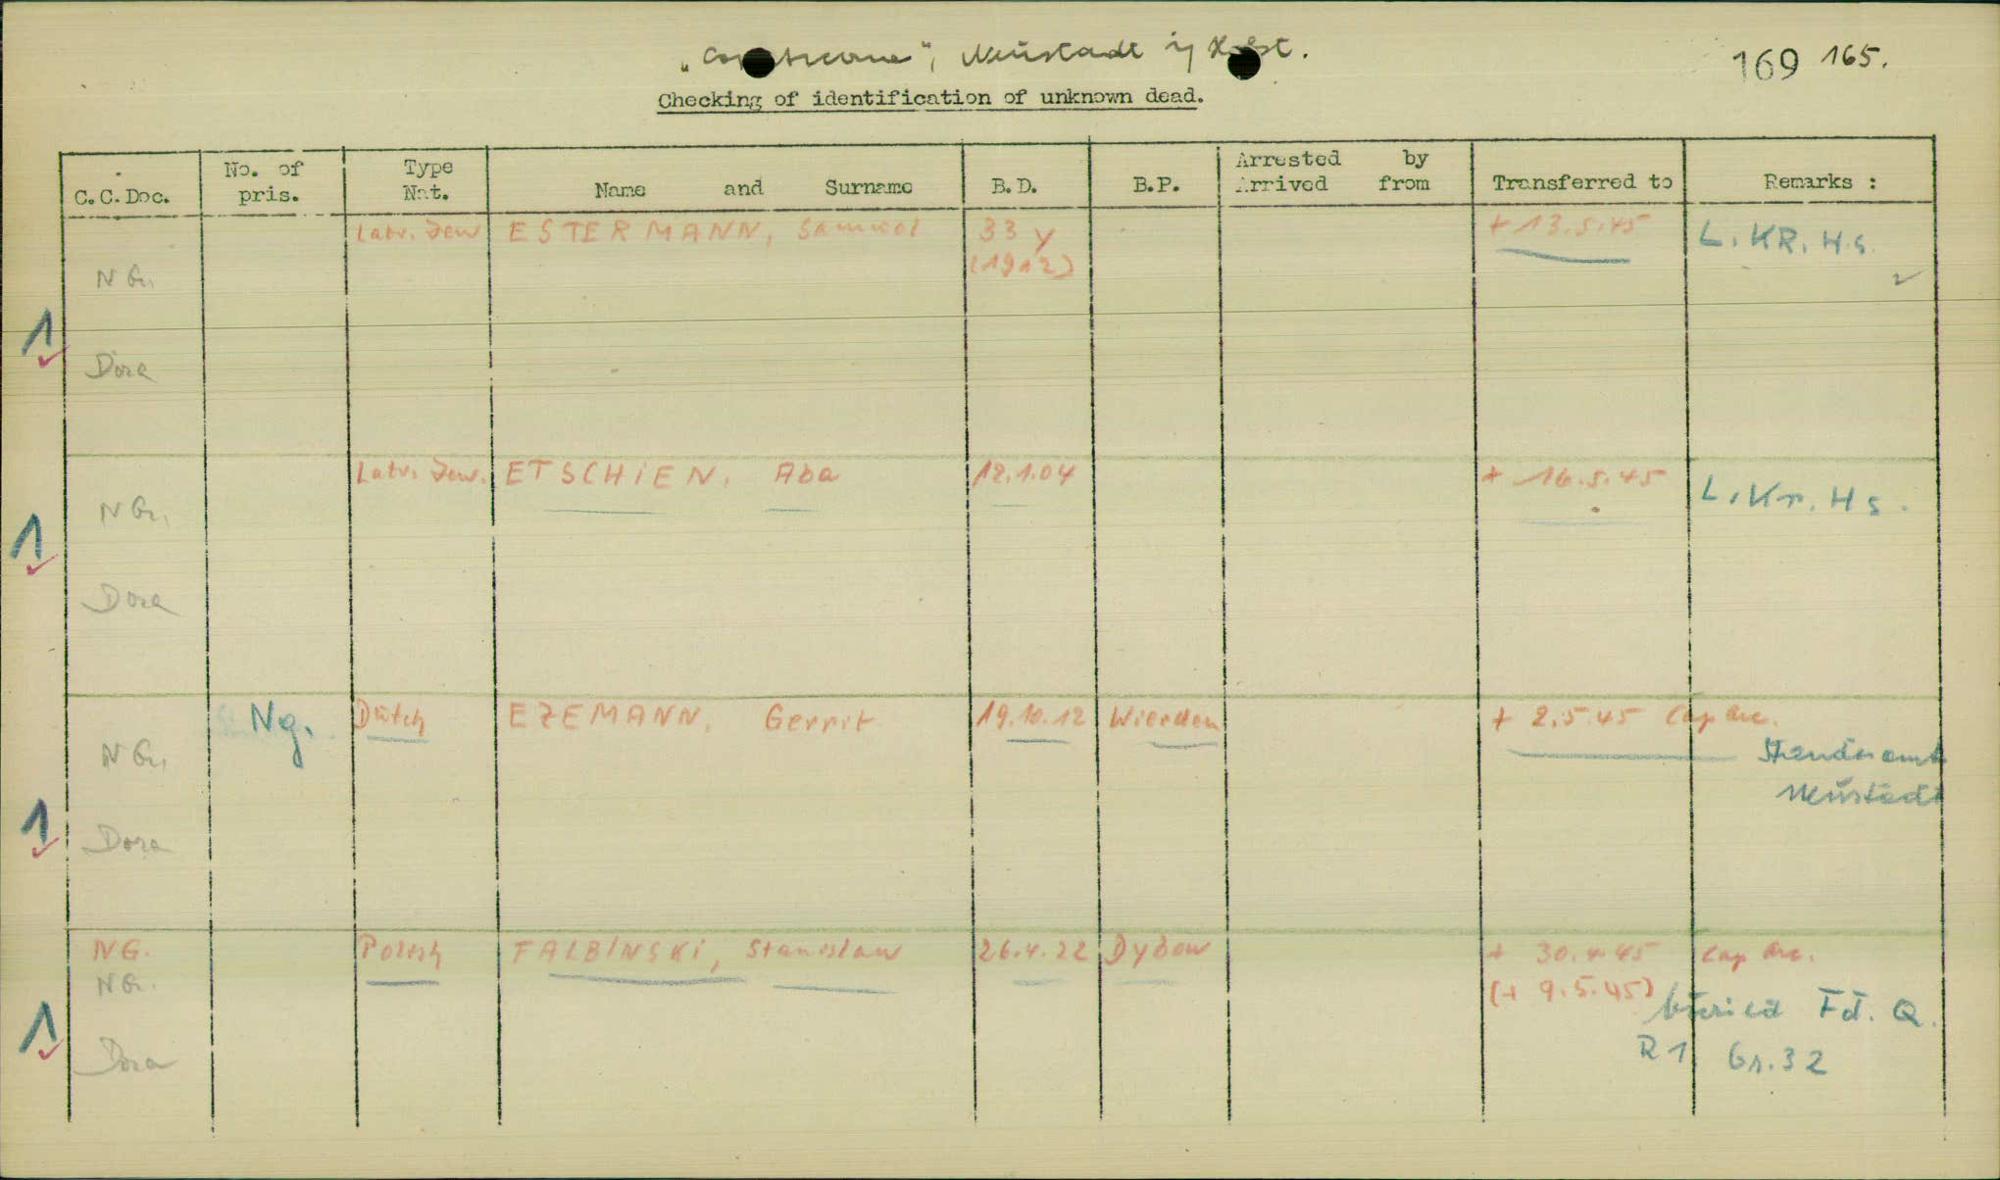 „Cap Arcona", Neustadt i/ Holst.
169 165.
Checking of identification of unknown dead.
C.C.Doc. No. of pris. Type Nat. Name and Surname B.D. B.P. Arrested by Arrived from Transferred to Remarks :
Latv. Jew ESTERMANN, Samuel 33 y + 13.5.45 L. KR. Hs.
(1912)
N G.
1
Dora
Latv. Jew. ETSCHIEN, Aba 12.1.04 + 16.5.45 L. Kr. Hs.
N G.
1
Dora
Ng. Dutch EZEMANN, Gerrit 19.10.12 Wierden + 2.5.45 Cap Arc.
N G. Standesamt
Neustadt
1
Dora
NG. Polish FALBINSKI, Stanislaw 26.4.22 Dybow + 30.4.45 Cap Arc.
NG. (+ 9.5.45) buried Fd. Q.
1
Dora R 1 Gr. 32